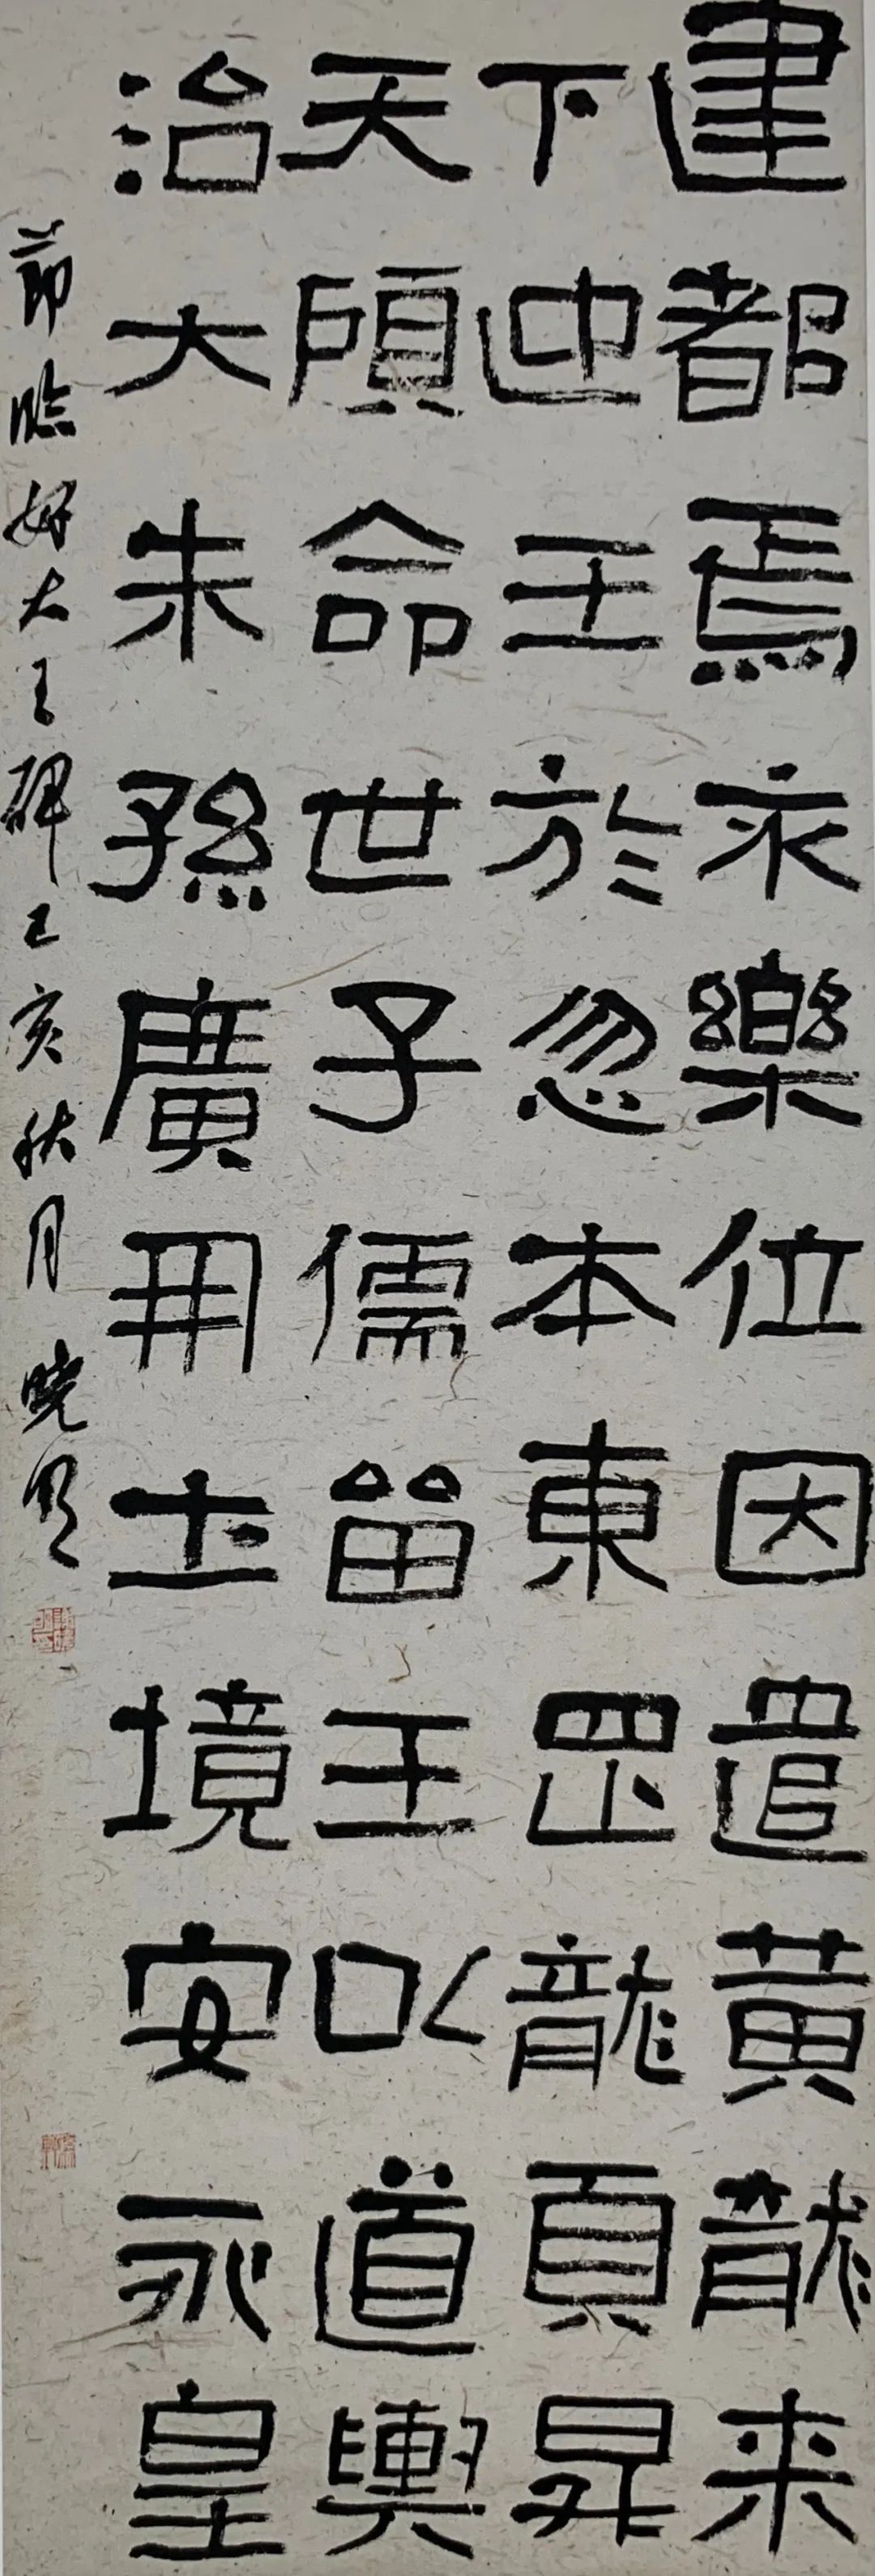 建都焉永樂位因遣黄龍来
下迎王於忽本東罡龍頁昇
天顧命世子儒留王以道輿
治大朱孫廣開土境安永皇
節臨好大王碑己亥秋月曉